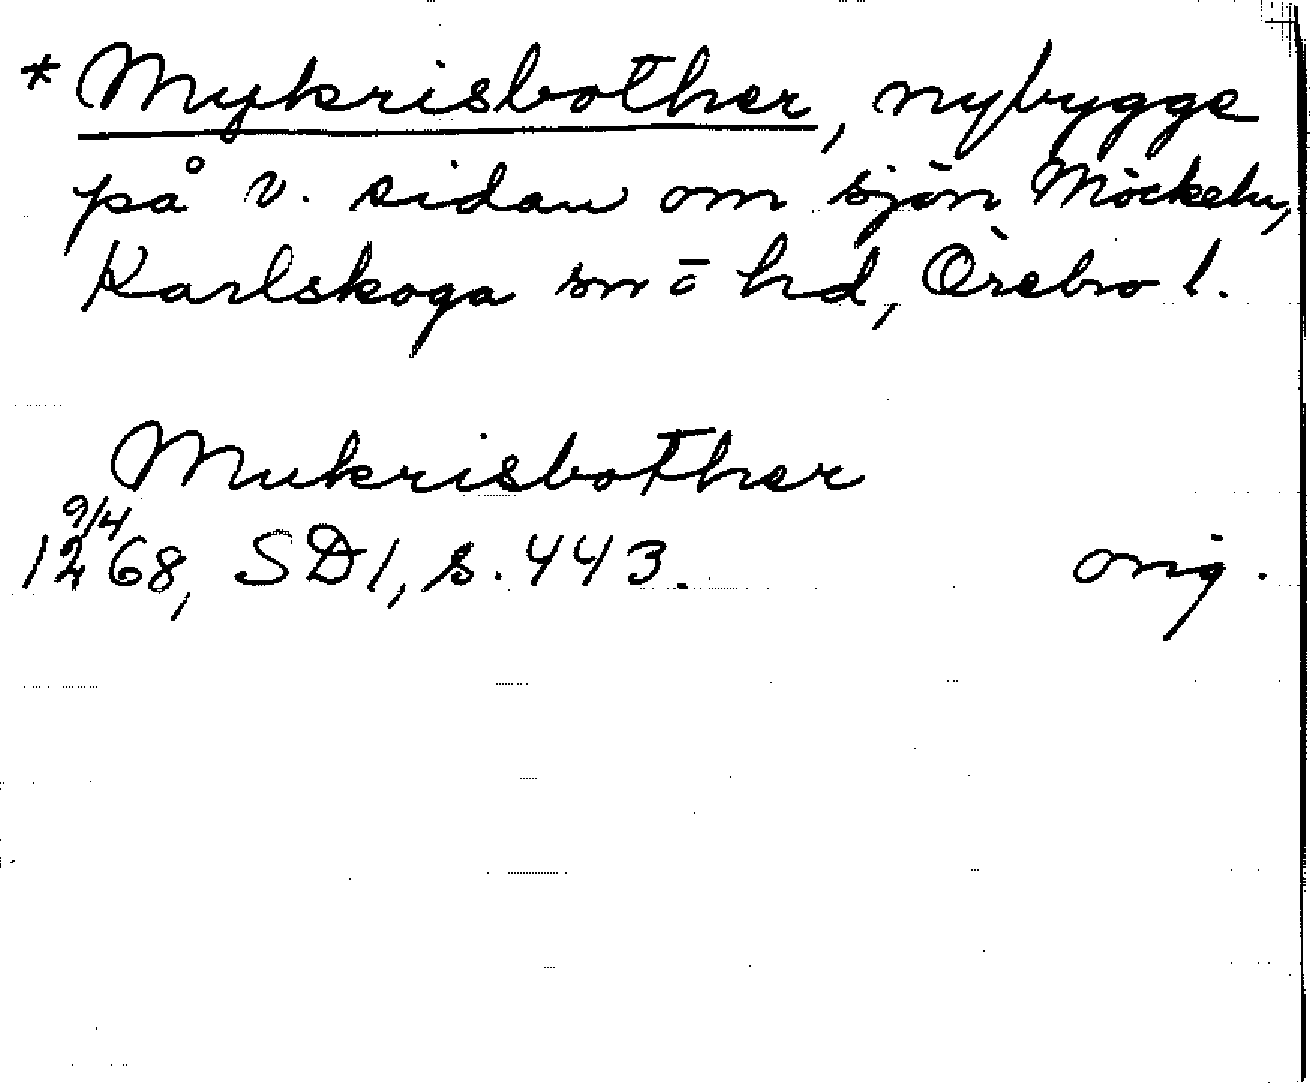 * Mykrisbother, nybygge
på v. sidan om sjön Möckeln,
Karlskoga sn o hd, Örebro l.
Mukrisbother
9/4
1268, SD1, s. 443. orig.